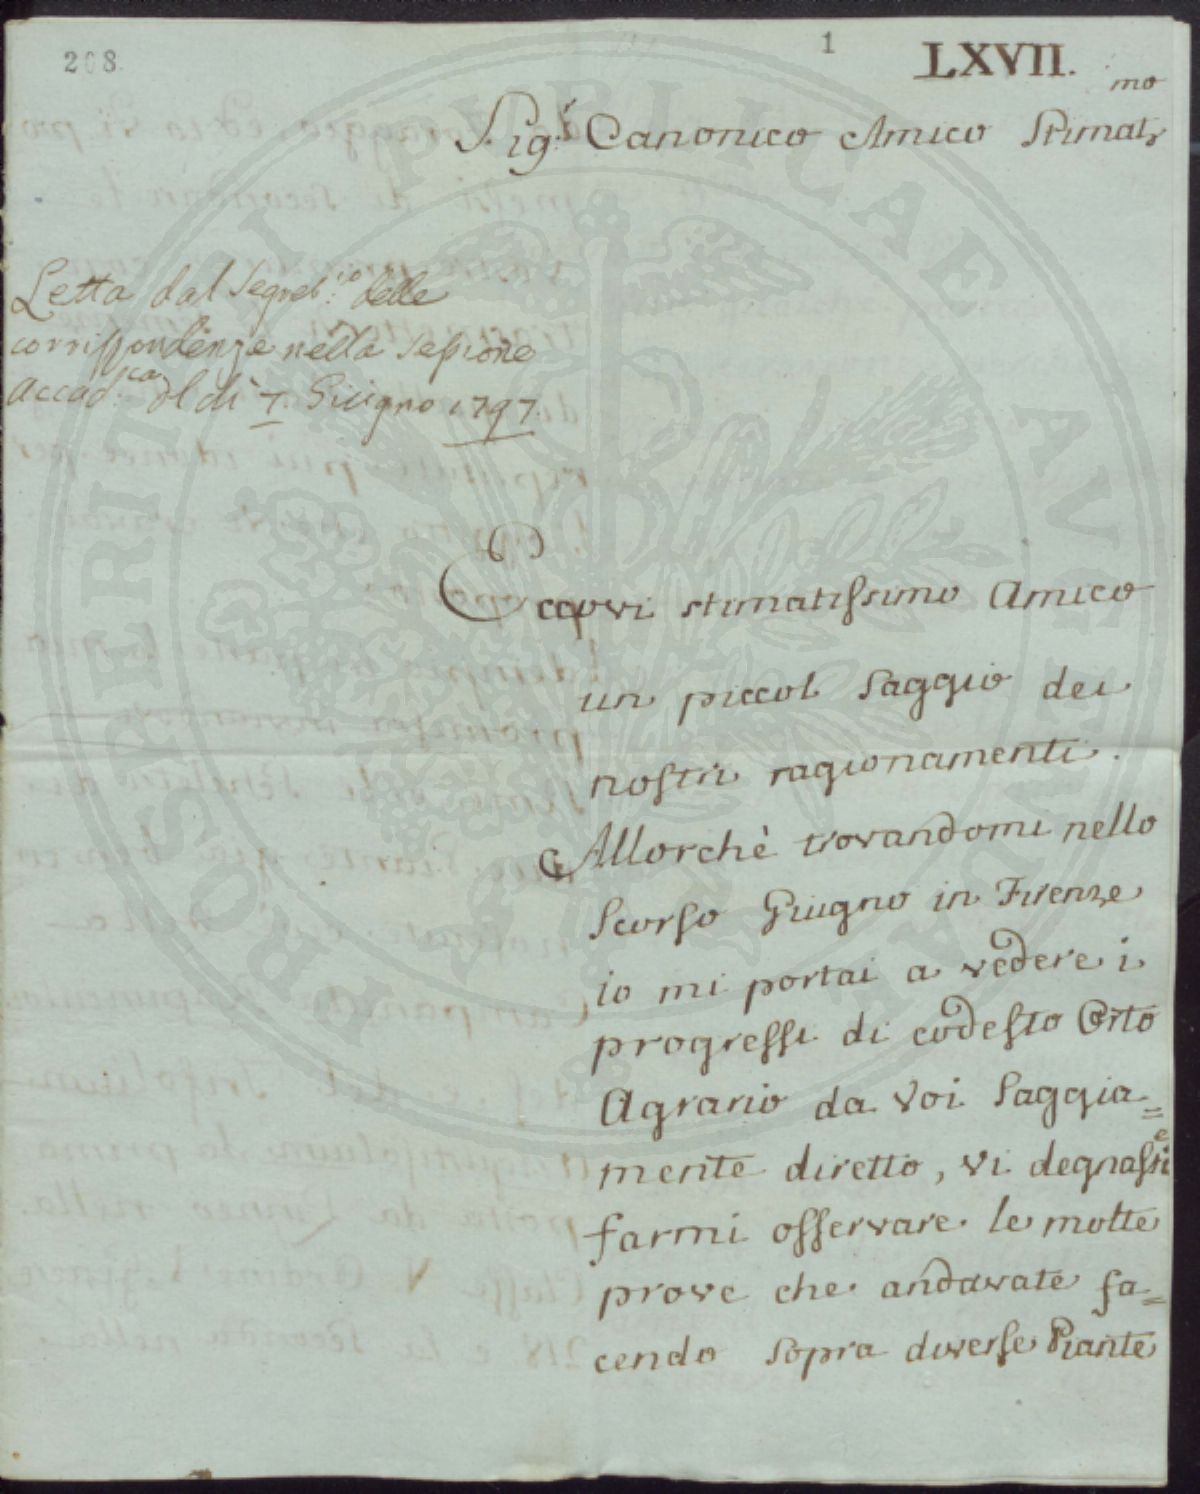 208.
1
LXVII.
Sig.r Canonico Amico Stimat.mo
Letta dal Segret.io delle
corrispondenze nella Sessione
Accad.ca del dì 7. Giugno 1797.
Eccovi stimatissimo Amico
un piccol Saggio dei
nostri ragionamenti.
Allorchè trovandomi nello
Scorso Giugno in Firenze
io mi portai a vedere i
progressi di codesto Orto
Agrario da Voi Saggia=
mente diretto, vi degnaste
farmi osservare le molte
prove che andavate fa=
cendo sopra diverse Piante
PROSPERITATI PUBLICAE AUGENDAE